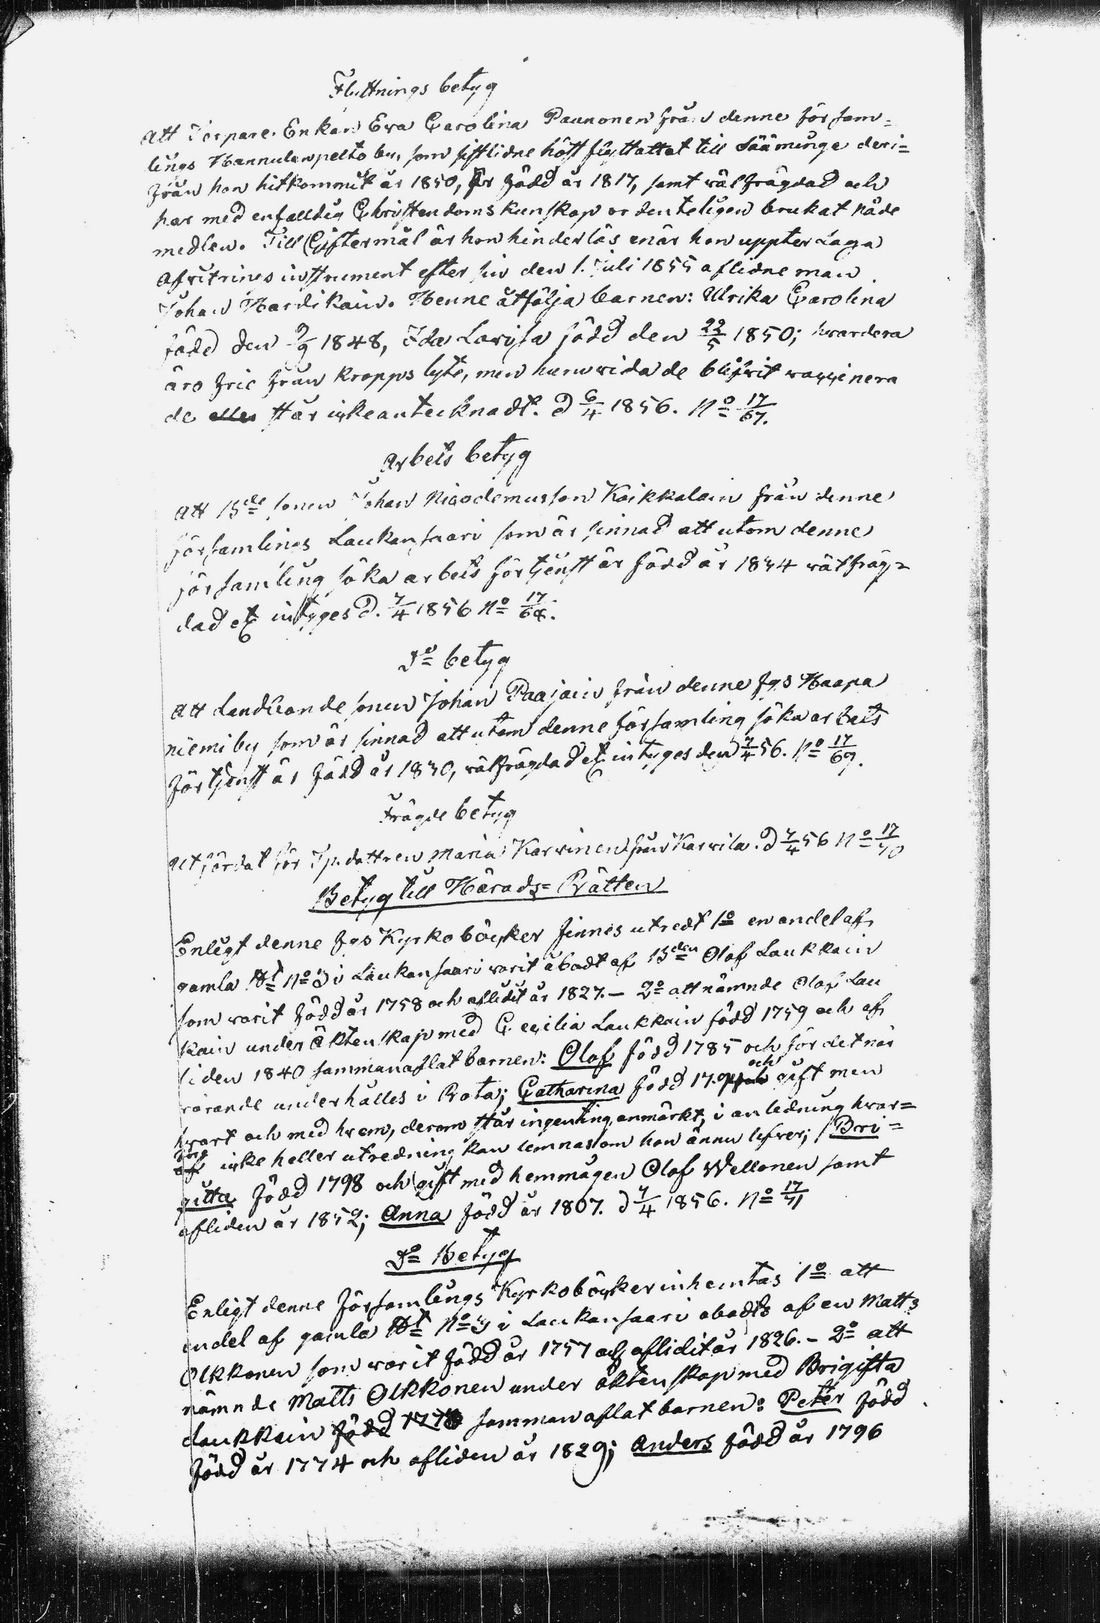 Flyttnings betyg
Att Torpare Enkan Eva Carolina Paunonen från denne försam=
lings Hannulanpelto by, som sistlidne höst flyttattat till Sääminge deri=
från hon hitkommit år 1850, är född år 1817, samt välfrägdad och
har med enfalldig Christendomskunskap ordenteligen brukat nåde
medlen. Till Giftermål är hon hinderlös enär hon uppter Laga
afvitrings instrument efter sin den 1. Juli 1855 aflidne man
Johan Hardikain. Henne åtfölja barnen: Ulrika Carolina
född den 9/9 1848, Ida Lovisa född den 22/5 1850; hvardera
äro frie från kropps lyte, men huruvida de blifvit vaccinera
de eller står icke antecknadt. D 6/4 1856. No 17/67.
Arbets betyg
Att Bde sonen Johan Nicodemusson Koikkalain från denne
församlings Laukansaari som är sinnad att utom denne
församling söka arbets förtjenst är född år 1834 välfräg=
dad etc intyges D. 7/4 1856 No 17/68.
Do betyg
Att Landbonde sonen Johan Paajain från denne fgs Haapa
niemi by som är sinnad att utom denne församling söka arbets
förtjenst är född år 1830, välfrägdad etc intyges den 7/4 56. No 17/69.
Frägde betyg
utfördat för Tp. dottren Maria Karvinen från Karvila. D 7/4 56 No 17/70
Betyg till Härads=Rätten
Enligt denne fgs Kyrkoböcker finnes utredt 1o en andel af
gamla Ht No 3 i Laukansaari varit åbodt af Bden Olof Laukkain
som varit född år 1758 och aflidit år 1827. – 2o att nämnde Olof Lau
kain under äktenskap med Cecilia Laukkain född 1759 och af
liden 1840 sammanaflat barnen: Olof född 1785 och för det när
varande underhålles i Rota; Catharina född 17.. och gift men
hvart och med hvem, derom står ingenting anmärkt, i anledning hvar=
af icke heller utredning kan lemnas om hon ännu lefver; Bri=
gitta född 1798 och gift med hemmågen Olof Wellonen samt
afliden år 1852; Anna född år 1807. D 7/4 1856. No 17/71
Do Betyg
Enligt denne församlings Kyrkoböcker inhemtas 1o att
endel af gamla Ht No 3 i Laukansaari åbodts af en Matts
Olkkonen som varit född år 1757 och aflidit år 1826. – 2o att
nämnde Matts Olkkonen under äktenskap med Brigitta
Laukkain född 1778 sammanaflat barnen: Peter född
född år 1774 och afliden år 1829; Anders född år 1796